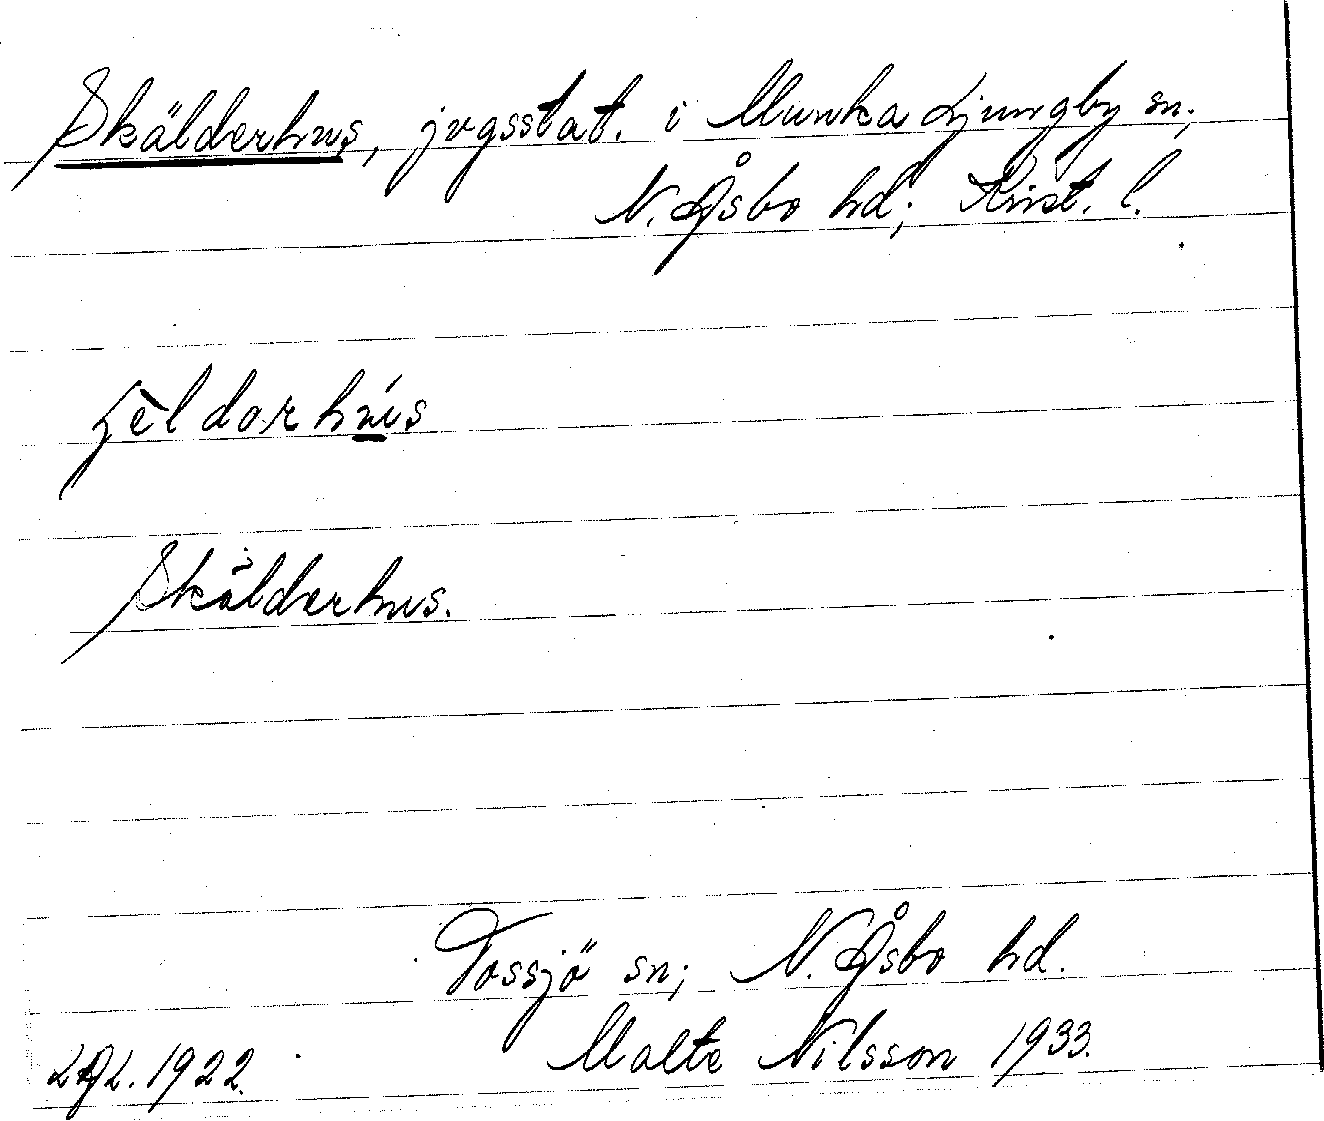 Skälderhus, jvgsstat. i Munka Ljungby sn;
N. Åsbo hd; Krist. l.
Skälderhus.
Tossjö sn; N. Åsbo hd.
LAL. 1922. Malte Nilsson 1933.